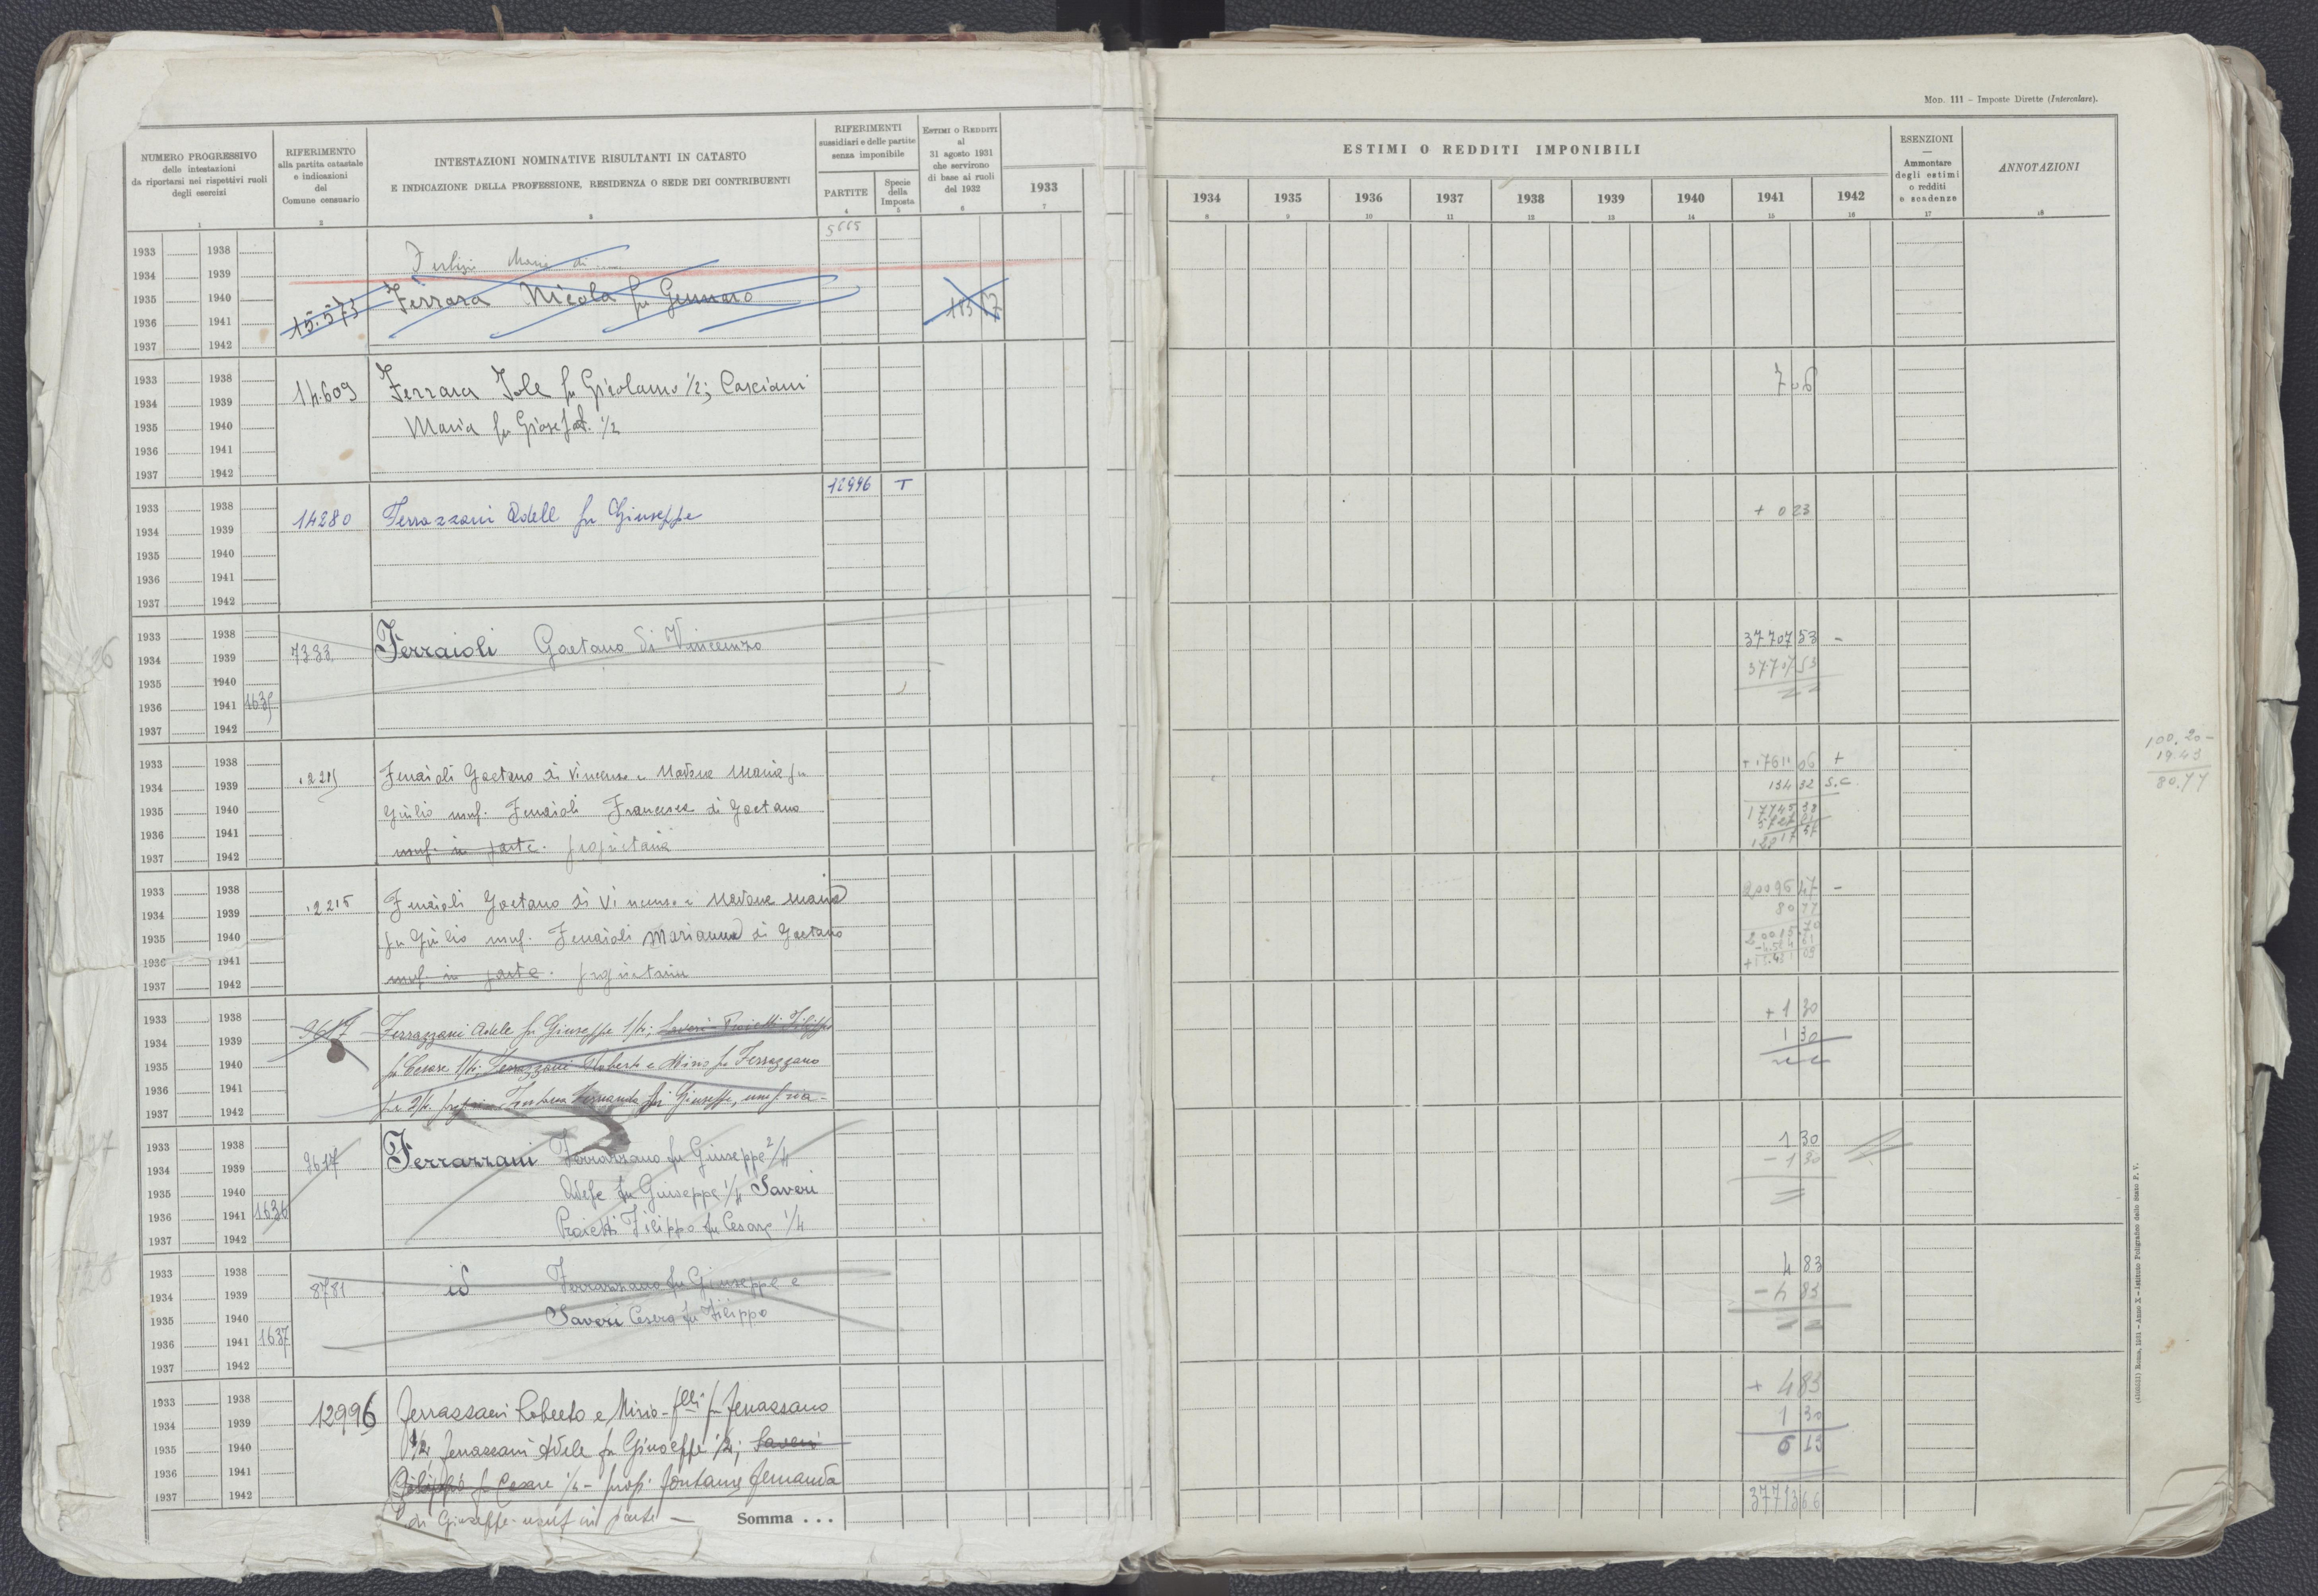 MOD. 111 – Imposte Dirette (Intercalare).
NUMERO PROGRESSIVO
delle intestazioni
da riportarsi nei rispettivi ruoli
degli esercizi
1
RIFERIMENTO
alla partita catastale
e indicazioni
del
Comune censuario
2
INTESTAZIONI NOMINATIVE RISULTANTI IN CATASTO
E INDICAZIONE DELLA PROFESSIONE, RESIDENZA O SEDE DEI CONTRIBUENTI
3
RIFERIMENTI
sussidiari e delle partite
senza imponibile
PARTITE
4
Specie
della
Imposta
5
ESTIMI O REDDITI
al
31 agosto 1931
che servirono
di base ai ruoli
del 1932
6
1933
7
ESTIMI O REDDITI IMPONIBILI
1934 1935 1936 1937 1938 1939 1940 1941 1942
8 9 10 11 12 13 14 15 16
ESENZIONI
—
Ammontare
degli estimi
o redditi
e scadenze
17
ANNOTAZIONI
18
5665
1933 1938
1934 1939
1935 1940
1936 1941
1937 1942
15.573 Ferrara Nicola fu Gennaro
1933 1938
1934 1939
1935 1940
1936 1941
1937 1942
14.609 Ferrara Iole fu Girolamo 1/2; Casciani
Maria fu Giosefat. 1/2
7 06
1933 1938
1934 1939
1935 1940
1936 1941
1937 1942
12996 T
14280 Ferrazzani Adele fu Giuseppe
+ 0 23
1933 1938
1934 1939
1935 1940
1936 1941 1635
1937 1942
7333 Ferraioli Gaetano di Vincenzo
37707 53 -
37707 53
1933 1938
1934 1939
1935 1940
1936 1941
1937 1942
12215 Ferraioli Gaetano di Vincenzo e Madona Maria fu
Giulio usuf. Ferraioli Francesca di Gaetano
usuf. in parte. proprietaria
+ 17611 06 +
134 32 S.C.
17745 38
100.20 -
19.43
80.77
1933 1938
1934 1939
1935 1940
1936 1941
1937 1942
12215 Ferraioli Gaetano di Vincenzo e Madona Maria
fu Giulio usuf. Ferraioli Marianna di Gaetano
usuf. in parte. proprietaria
20096 47 -
80 77
20015 70
1933 1938
1934 1939
1935 1940
1936 1941
1937 1942
9617 Ferrazzani Adele fu Giuseppe 1/4; Saveri Proietti Filippo
fu Cesare 1/4; Ferrazzani Roberto e Mirio fu Ferrazzano
+ 1 30
1 30
1933 1938
1934 1939
1935 1940
1936 1941 1636
1937 1942
9617 Ferrazzani Ferrazzano fu Giuseppe 2/4
Adele fu Giuseppe 1/4 Saveri
Proietti Filippo fu Cesare 1/4
1 30
- 1 30
1933 1938
1934 1939
1935 1940
1936 1941 1637
1937 1942
8781 id Ferrazzano fu Giuseppe e
Saveri Cesera fu Filippo
4 83
- 4 83
1933 1938
1934 1939
1935 1940
1936 1941
1937 1942
12996 Ferrazzani Roberto e Mirio - flli fu Ferrazzano
1/2, Ferrazzani Adele fu Giuseppe 1/2; Saveri
Filippo fu Cesare 1/4 - prop. Fontana Fernanda
di Giuseppe usuf in parte —
+ 4 83
1 30
6 13
Somma . . .
37713 66